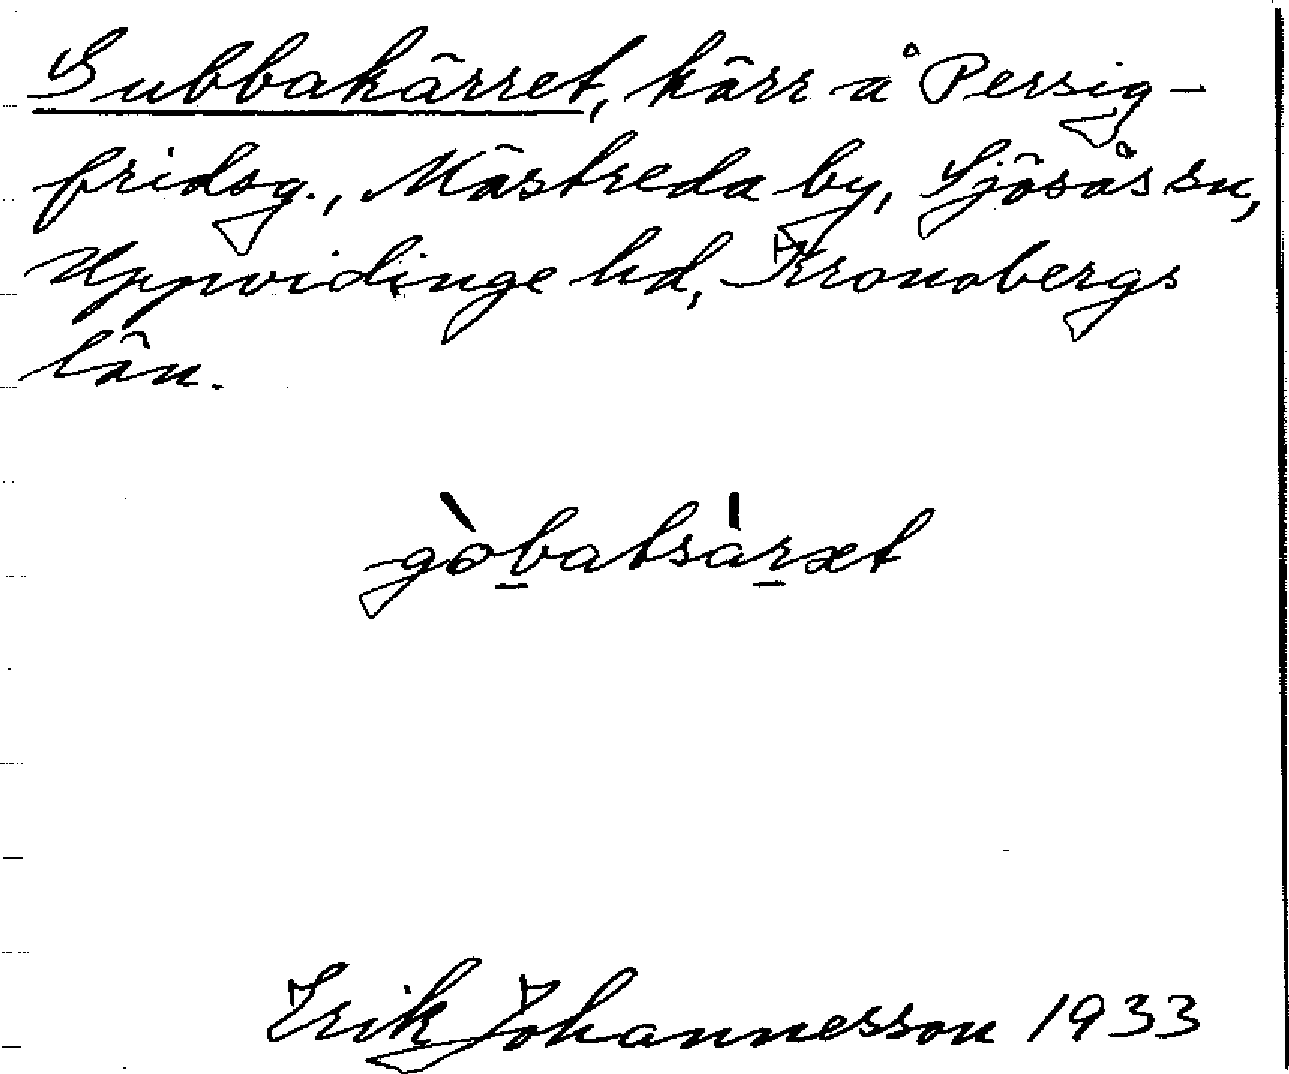 Gubbakärret, kärr å Persig-
fridsg., Mästreda by, Sjösås sn,
Uppvidinge hd, Kronobergs
län.
gòbatsàrxt
Erik Johannesson 1933